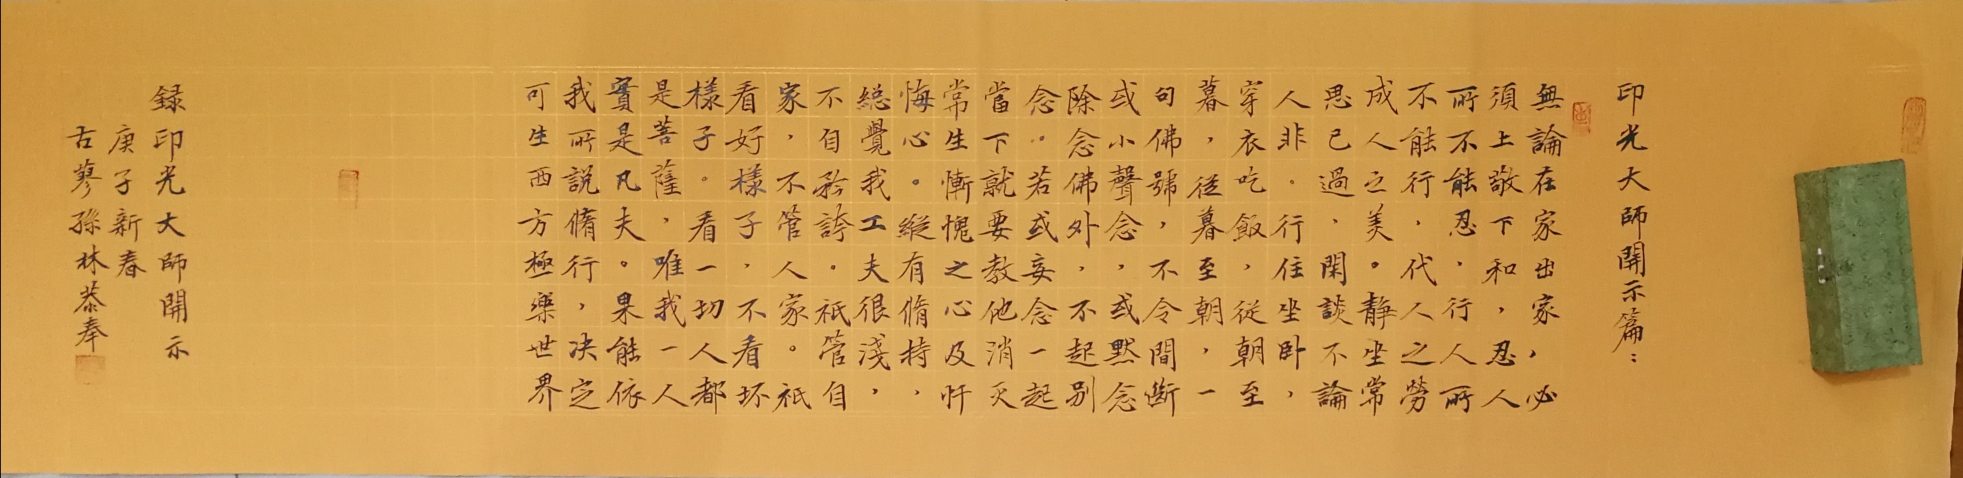 印光大師開示篇：
無論在家出家，必
須上敬下和，忍人
所不能忍，行人所
不能行，代人之勞
成人之美。靜坐常
思己過，閑談不論
人非。行住坐卧，
穿衣吃飯，從朝至
暮，從暮至朝，一
句佛號，不令間斷
或小聲念，或默念
除念佛外，不起别
念。若或妄念一起
當下就要教他消灭
常生慚愧之心及忏
悔心。縱有脩持，
總覺我工夫很淺，
不自矜誇。衹管自
家，不管人家。衹
看好樣子，不看坏
樣子。看一切人都
是菩薩，唯我一人
實是凡夫。果能依
我所説脩行，决定
可生西方極樂世界
録印光大師開示
庚子新春
古蓼孫林恭奉